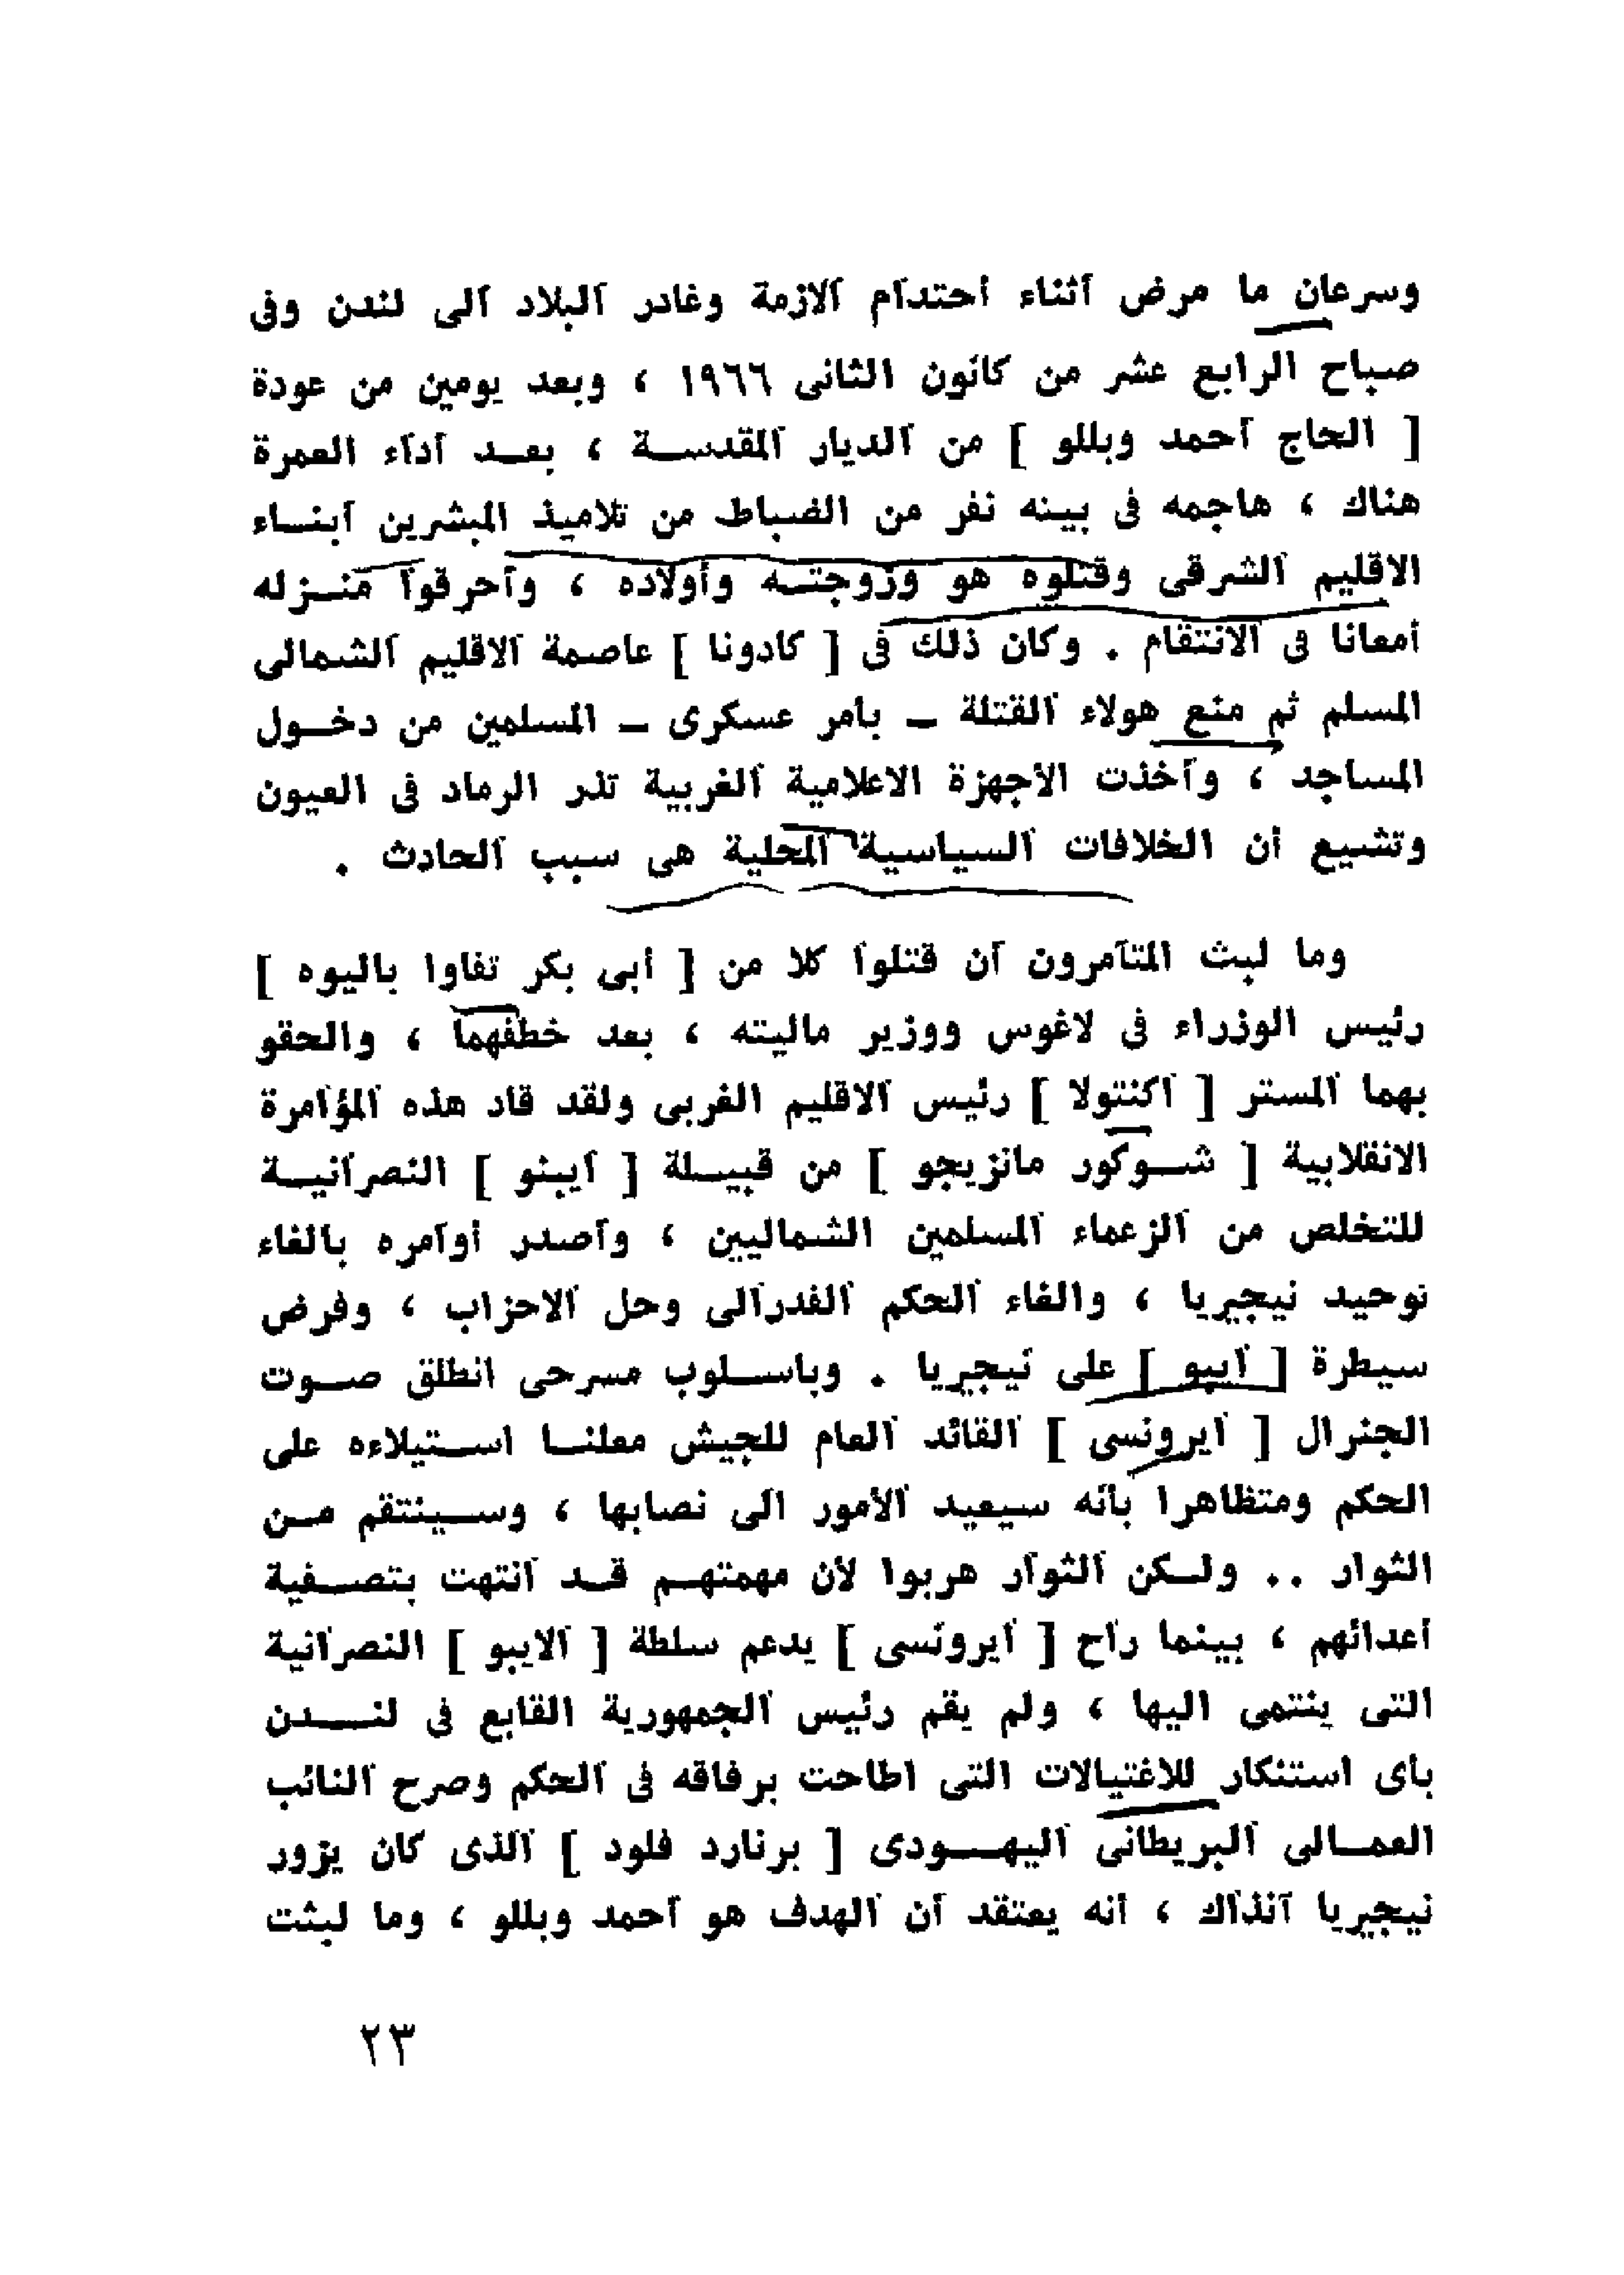 وسرعان ما مرض أثناء أحتدام الازمة وغادر البلاد الى لندن وفى
صباح الرابع عشر من كانون الثانى ١٩٦٦ ، وبعد يومين من عودة
[ الحاج أحمد وبللو ] من الديار المقدســة ، بعــد أداء العمرة
هناك ، هاجمه فى بيته نفر من الضباط من تلاميذ المبشرين أبنــاء
الاقليم الشرقى وقتلوه هو وزوجتــه وأولاده ، وأحرقوا منــزله
أمعانا فى الانتقام . وكان ذلك فى [ كادونا ] عاصمة الاقليم الشمالى
المسلم ثم منع هولاء القتلة – بأمر عسكرى – المسلمين من دخــول
المساجد ، وأخذت الأجهزة الاعلامية الغربية تذر الرماد فى العيون
وتشيع أن الخلافات السياسية المحلية هى سبب الحادث .
وما لبث المتآمرون أن قتلوا كلا من [ أبى بكر تفاوا باليوه ]
رئيس الوزراء فى لاغوس ووزير ماليته ، بعد خطفهما ، والحقو
بهما المستر [ اكنتولا ] رئيس الاقليم الغربى ولقد قاد هذه المؤامرة
الانقلابية [ شــوكور مانزيجو ] من قبيــلة [ أيبئو ] النصرانيــة
للتخلص من الزعماء المسلمين الشماليين ، وأصدر أوامره بالغاء
توحيد نيجيريا ، والغاء الحكم الفدرالى وحل الاحزاب ، وفرض
سيطرة [ أيبو ] على نيجيريا . وباســلوب مسرحى انطلق صــوت
الجنرال [ أيرونسى ] القائد العام للجيش معلنــا اســتيلاءه على
الحكم ومتظاهرا بأنه سيعيد الأمور الى نصابها ، وســينتقم مــن
الثوار .. ولــكن الثوار هربوا لأن مهمتهــم قــد انتهت بتصــفية
أعدائهم ، بينما راح [ أيرونسى ] يدعم سلطة [ الايبو ] النصرانية
التى ينتمى اليها ، ولم يقم رئيس الجمهورية القابع فى لنــــدن
بأى استنكار للاغتيالات التى اطاحت برفاقه فى الحكم وصرح النائب
العمــالى البريطانى اليهــودى [ برنارد فلود ] الذى كان يزور
نيجيريا آنذاك ، أنه يعتقد أن الهدف هو أحمد وبللو ، وما لبثت
٢٣